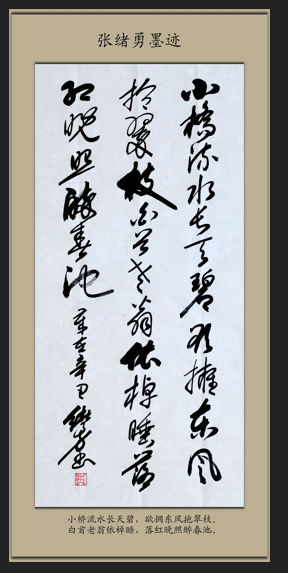 张绪勇墨迹
小桥流水长天碧欲拥东风
抱翠枝白首老翁依棹睡落
红晚照醉春池 岁在辛丑 绪勇书
小桥流水长天碧，欲拥东风抱翠枝。
白首老翁依棹睡，落红晚照醉春池。